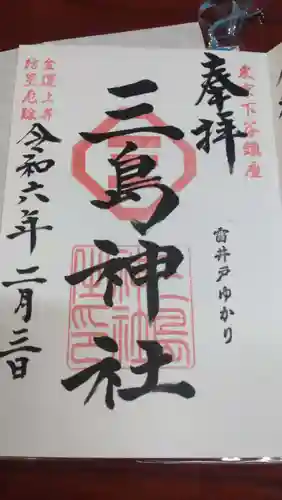 東京下谷鎮座
奉拝
雷井戸ゆかり
三島神社
金運上昇
防災厄除
令和六年二月三日